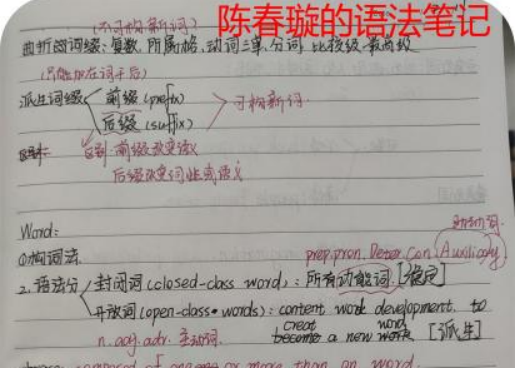 陈春璇的语法笔记
(不可构新词)
曲折词缀:复数,所属格,动词三单,分词,比较级,最高级
(只能加在词干后)
派生词缀 前缀(prefix)
后缀(suffix) 可构新词.
区别:前缀改变语义
后缀改变词性或语义
Word:
助动词.
①构词法. prep.pron.Deter.Con.Auxiliary.
2.语法分 封闭词(closed-class word):所有功能词[稳定]
开放词(open-class words):content word development. to
creat word
n.adj.adv.主动词. become a new work [派生]
composed of one or more than an word.